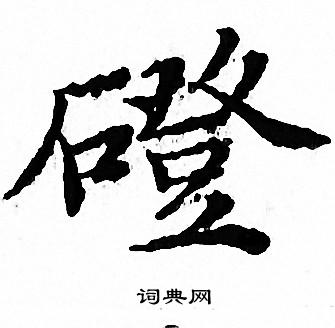 磴
词典网